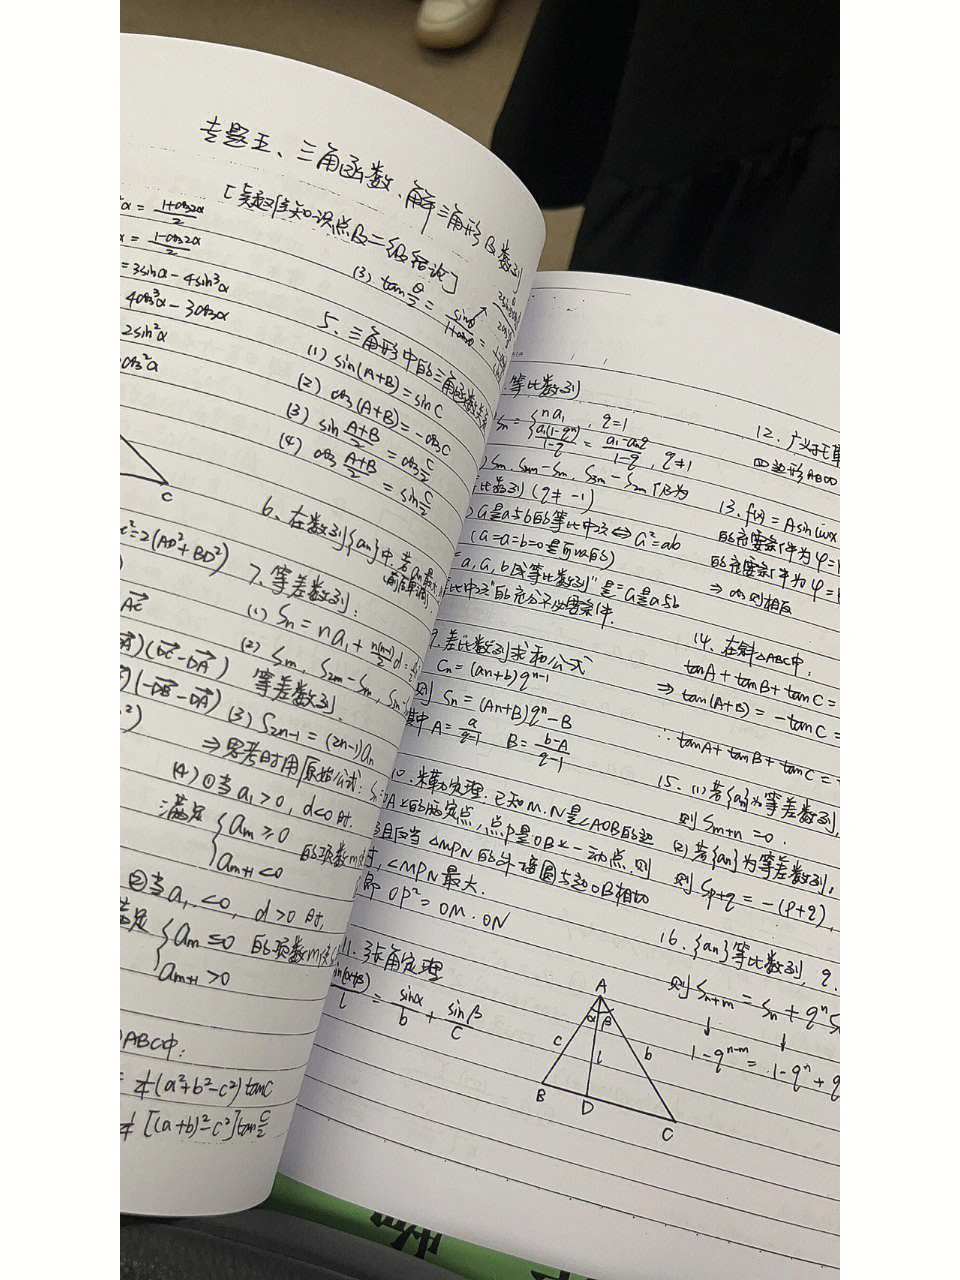 专题五、三角函数、解三角形及数列
[真题]知识点及二级结论]
α = (1+cos2α)/2
= (1-cos2α)/2
= 3sinα - 4sin³α
4cos³α - 3cosα
2sin²α
cos²α
C
c² = 2(AD²+BD²)
AC
(DC - DA)
(-DB - DA)
(3) tan θ/2 = sinθ/(1+cosθ) =
5、三角形中的三角函数关系
(1) sin(A+B) = sinC
(2) cos(A+B) = -cosC
(3) sin (A+B)/2 = cos C/2
(4) cos (A+B)/2 = sin C/2
6、在数列{an}中,若an最大
7、等差数列:
(1) Sn = na₁ + n(n-1)/2 d =
(2) Sm、S2m-Sm、S3m-
等差数列.
(3) S2n-1 = (2n-1)an
⇒思考时用原始公式:
(4) ①当a₁>0, d<0时.
满足 { am ≥ 0
am+1 < 0
的项数m
②当a₁<0, d>0时,
满足 { am ≤ 0
am+1 > 0
的项数m
ABC中:
= (a²+b²-c²)tanC
[(a+b)²-c²]tan C/2
等比数列
Sn = { na₁, q=1
a₁(1-qⁿ)/(1-q) = (a₁-anq)/(1-q), q≠1
Sm、S2m-Sm、S3m-S2m仍为
比数列(q≠-1)
G是a与b的等比中项⇔G²=ab
(G=a=b=0是可以的)
a,G,b成等比数列"是"G是a与b
比中项"的充分不必要条件.
9、差比数列求和公式
Cn = (an+b)qⁿ⁻¹
则 Sn = (An+B)qⁿ-B
其中 A = a/(q-1) B = (b-A)/(q-1)
10、米勒定理:已知M.N是∠AOB的边
OA上的两定点,点P是OB上一动点,则
当且仅当△MPN的外接圆与边OB相切
时,∠MPN最大.
即 OP² = OM·ON
11、张角定理
sin(α+β)/l = sinα/b + sinβ/c
A
α β
c
l
b
B
D
C
12、广义
四边形ABCD
13、f(x) = Asin(ωx
的充要条件为φ=
的充要条件为φ=
⇒cos则相反
14、在斜△ABC中
tanA + tanB + tanC =
⇒ tan(A+B) = -tanC =
∴ tanA + tanB + tanC =
15、(1) 若{an}为等差数列,
则 Sm+n = 0.
(2) 若{an}为等差数列,
则 Sp+q = -(p+q),
16、{an}等比数列, q.
则 Sn+m = Sn + qⁿS
↓ ↓
1-qⁿ⁻ᵐ = 1-qⁿ + q